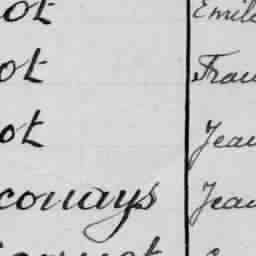 ot Emile
ot Fran
ot Jean
conays Jean